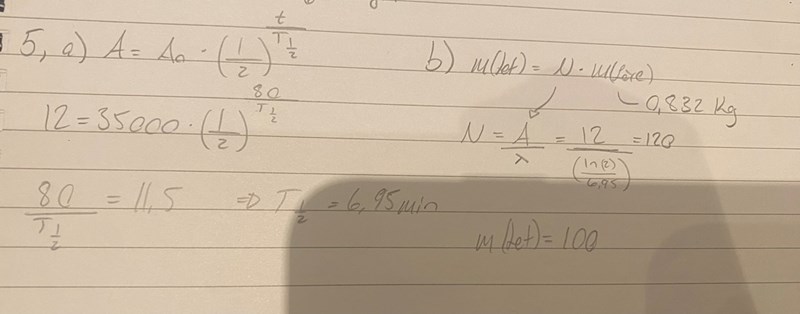 5, a) A = A₀ · (1/2)^(t/T½)
12 = 35000 · (1/2)^(80/T½)
80/T½ = 11,5 ⇒ T½ = 6,95 min
b) m(tot) = N · m(
0,832 kg
N = A/λ = 12/(ln(2)/6,95) = 120
m(tot) = 100